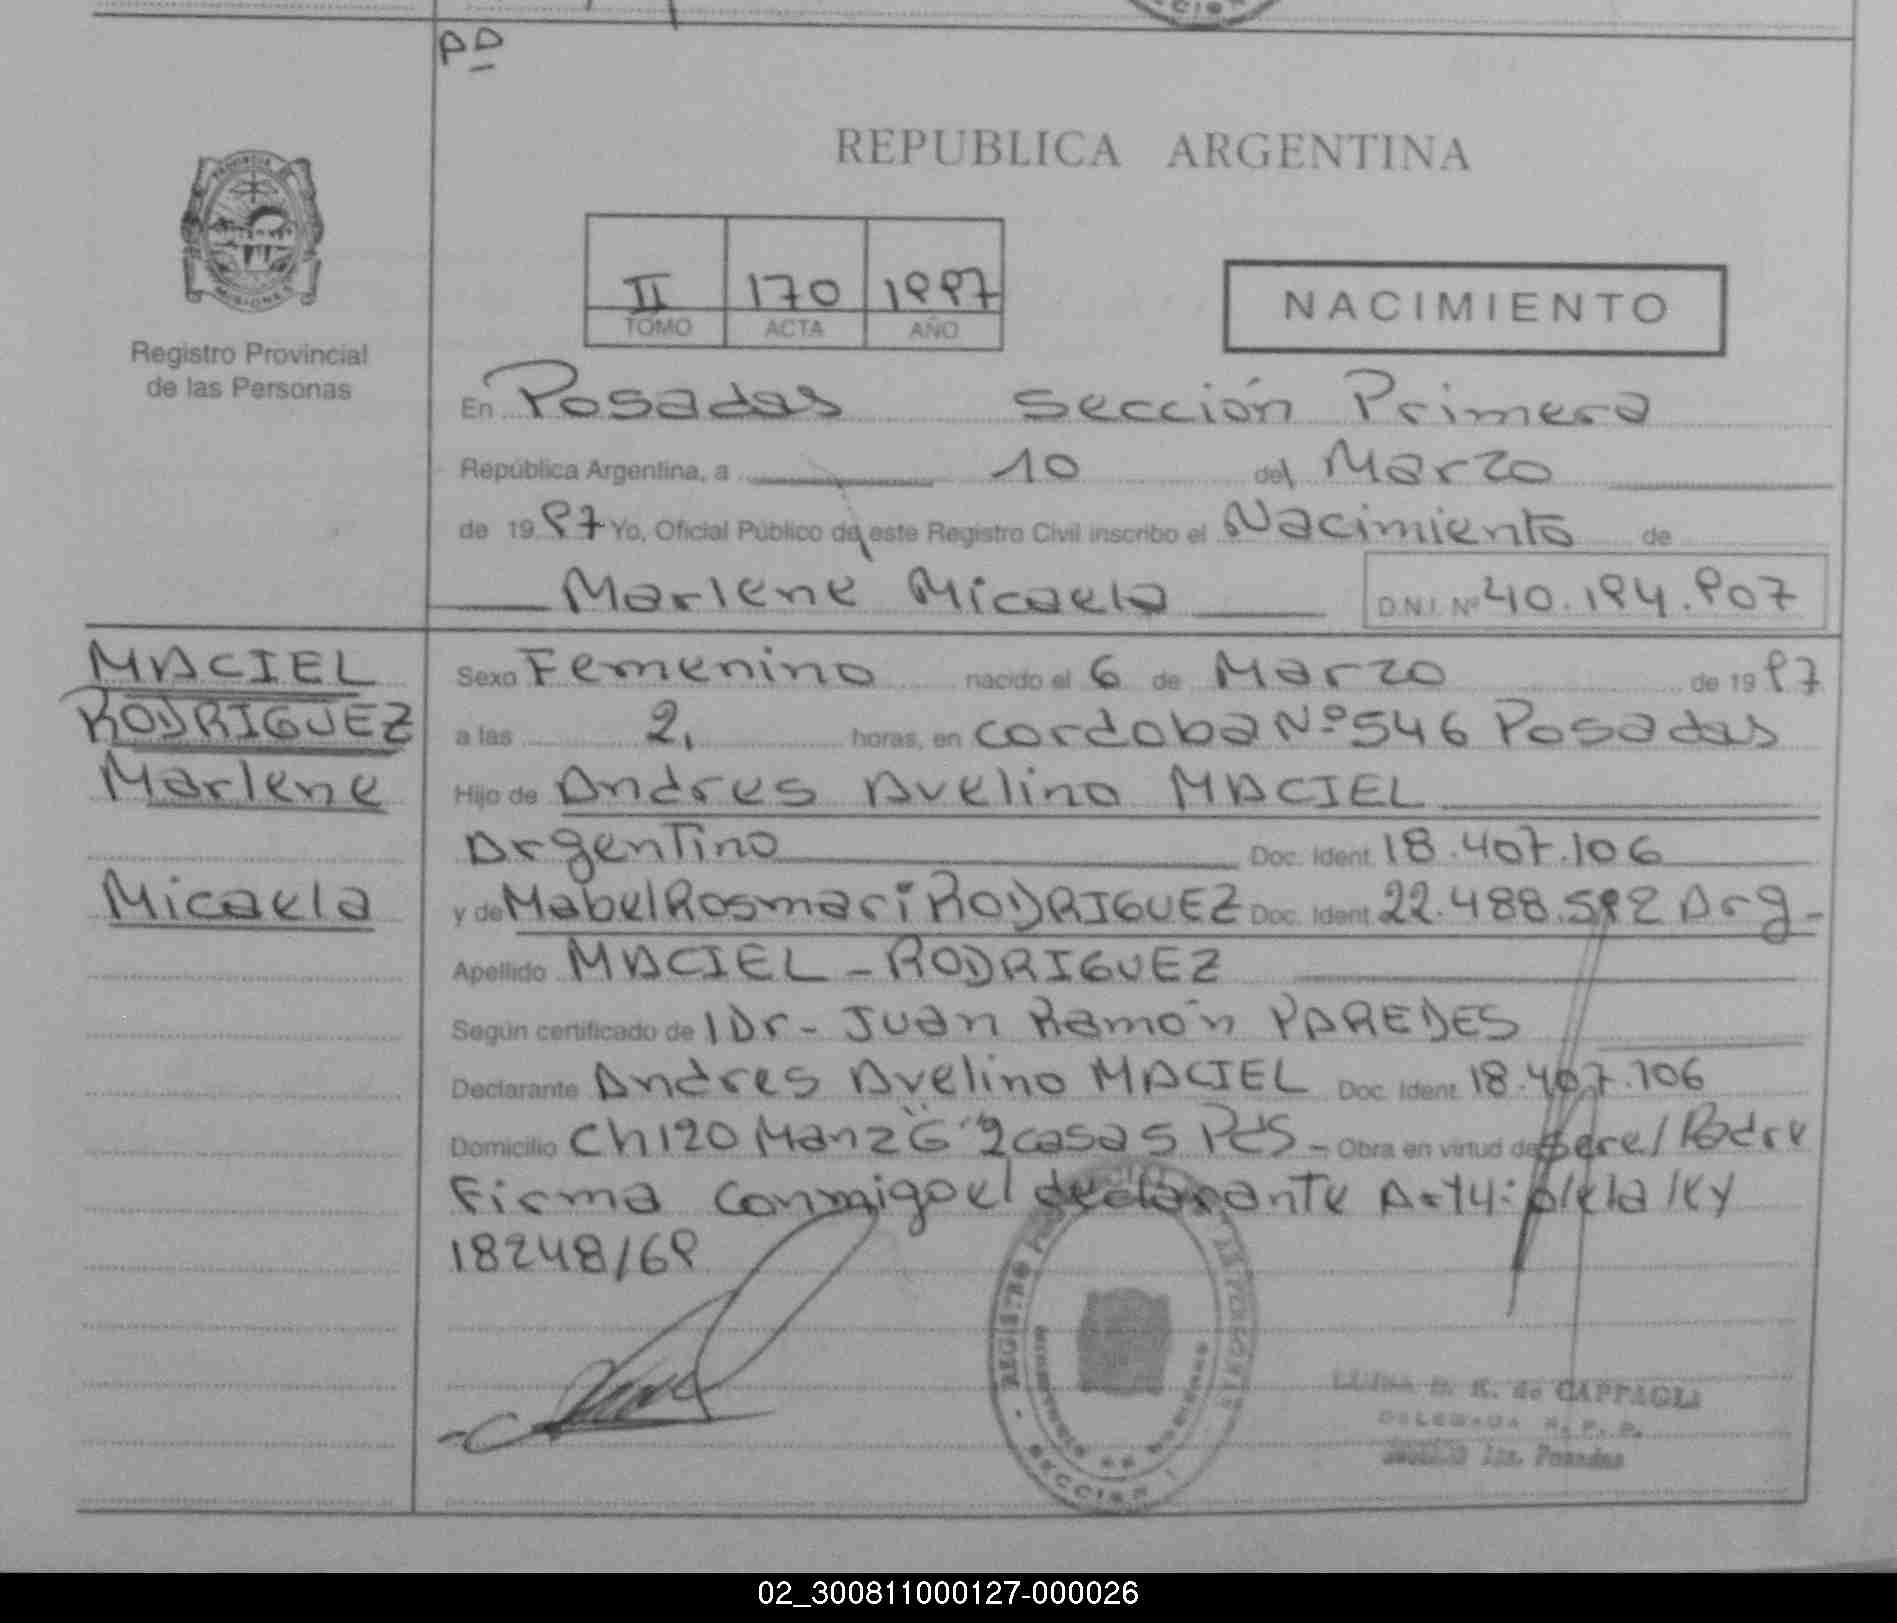 PD
REPUBLICA ARGENTINA
II 170 1997
TOMO ACTA AÑO
NACIMIENTO
Registro Provincial
de las Personas
En Posadas Sección Primera
República Argentina, a 10 del Marzo
de 1997 Yo, Oficial Público de este Registro Civil inscribo el Nacimiento de
Marlene Micaela D.N.I. Nº 40.194.907
MACIEL
RODRIGUEZ
Marlene
Micaela
Sexo Femenino nacido el 6 de Marzo de 1997
a las 2, horas, en cordoba Nº 546 Posadas
Hijo de Andres Avelino MACIEL
Argentino Doc. Ident. 18.407.106
y de Mabel Rosmari RODRIGUEZ Doc. Ident. 22.488.592 Arg-
Apellido MACIEL - RODRIGUEZ
Según certificado de Dr- Juan Ramón PAREDES
Declarante Andres Avelino MACIEL Doc. Ident. 18.407.106
Domicilio Ch 120 Manz "G" 2 casa 5 Pds - Obra en virtud de ser el Padre
Firma conmigo el declarante Art 4: de la ley
18248/69
SECCION
de CAPPAGLI
DELEGADA R. P. P.
1ra. Posadas
02_300811000127-000026